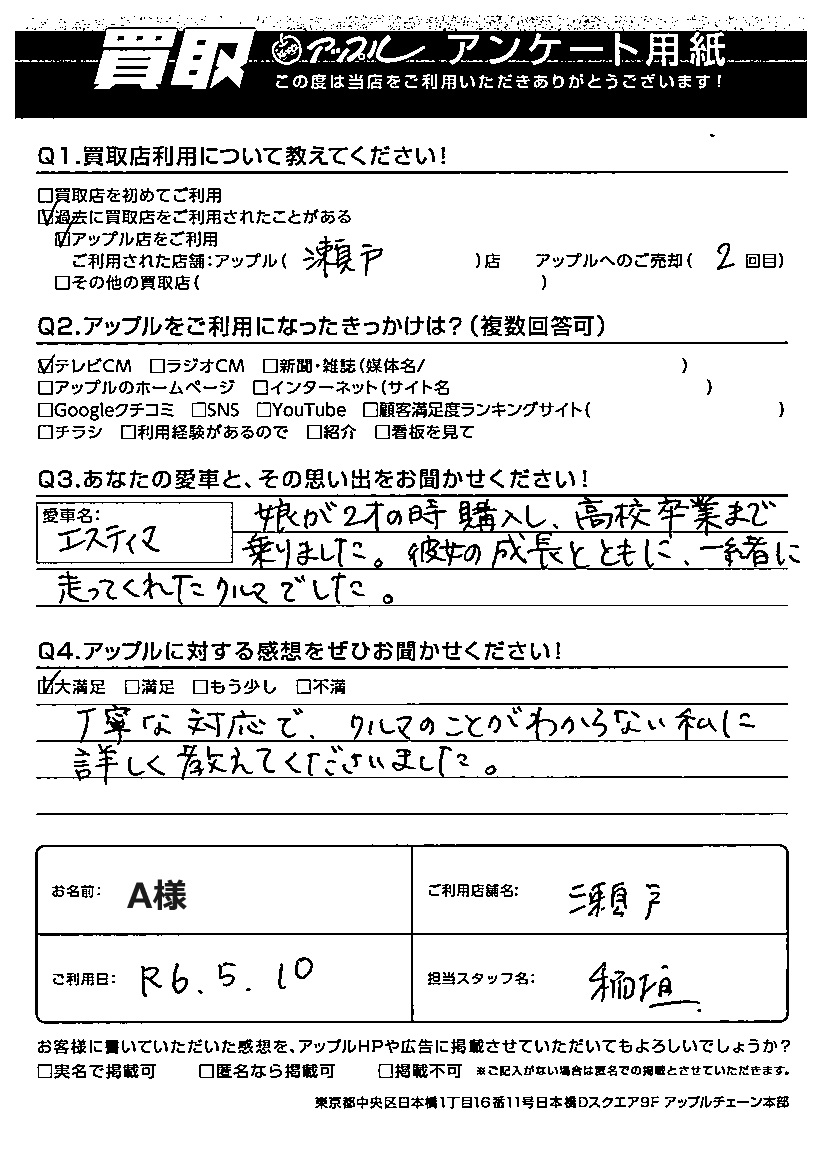 買取 アップル アンケート用紙
この度は当店をご利用いただきありがとうございます!
Q1.買取店利用について教えてください!
□買取店を初めてご利用
☑過去に買取店をご利用されたことがある
☑アップル店をご利用
ご利用された店舗:アップル( 瀬戸 )店 アップルへのご売却( 2 回目)
□その他の買取店( )
Q2.アップルをご利用になったきっかけは?(複数回答可)
☑テレビCM □ラジオCM □新聞・雑誌(媒体名/ )
□アップルのホームページ □インターネット(サイト名 )
□Googleクチコミ □SNS □YouTube □顧客満足度ランキングサイト( )
□チラシ □利用経験があるので □紹介 □看板を見て
Q3.あなたの愛車と、その思い出をお聞かせください!
愛車名:
エスティマ
娘が2才の時購入し、高校卒業まで
乗りました。彼女の成長とともに、一緒に
走ってくれたクルマでした。
Q4.アップルに対する感想をぜひお聞かせください!
☑大満足 □満足 □もう少し □不満
丁寧な対応で、クルマのことがわからない私に
詳しく教えてくださいました。
お名前: A様
ご利用店舗名: 瀬戸
ご利用日: R6.5.10
担当スタッフ名: 稲垣
お客様に書いていただいた感想を、アップルHPや広告に掲載させていただいてもよろしいでしょうか?
□実名で掲載可 □匿名なら掲載可 □掲載不可 ※ご記入がない場合は匿名での掲載とさせていただきます。
東京都中央区日本橋1丁目16番11号日本橋Dスクエア9F アップルチェーン本部